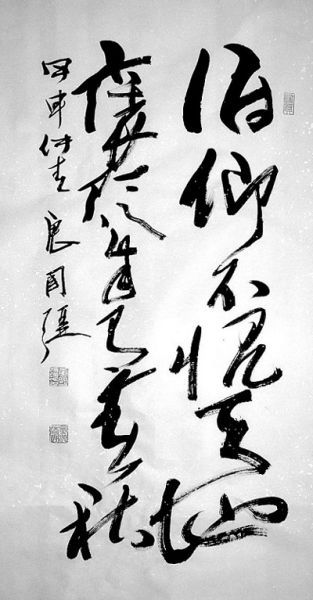 俯仰不愧天地
褒貶自有春秋
仲春